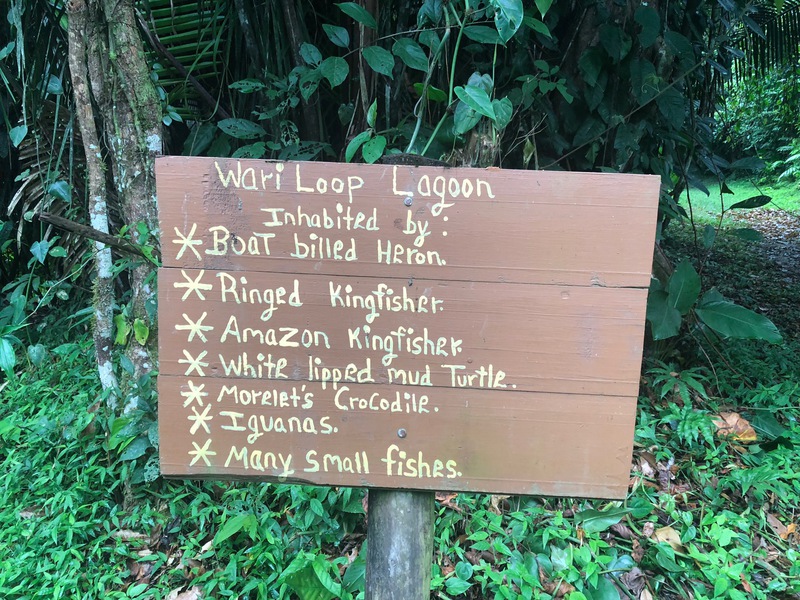 Wari Loop Lagoon
Inhabited by:
* Boat billed Heron.
* Ringed Kingfisher.
* Amazon Kingfisher.
* White lipped mud Turtle.
* Morelet's Crocodile.
* Iguanas.
* Many small fishes.